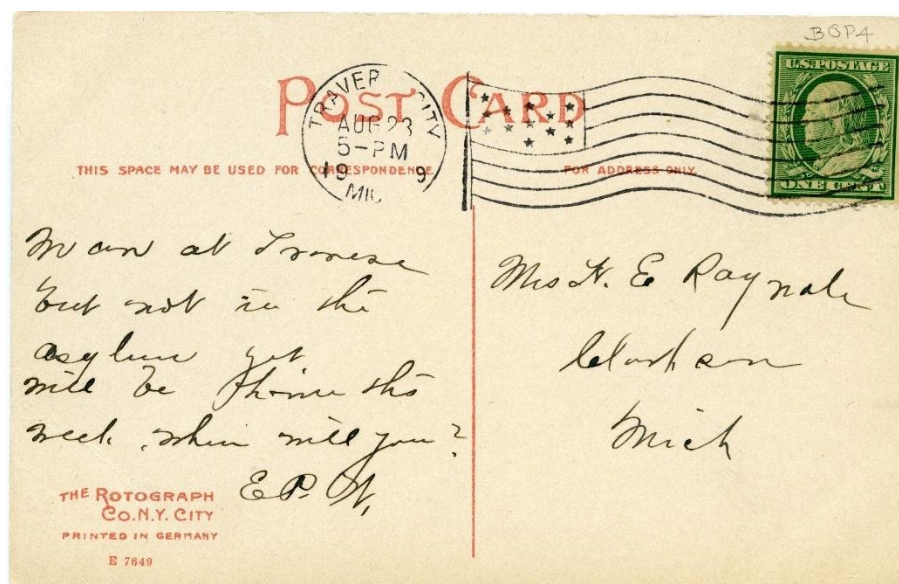 BOP4
U.S. POSTAGE
ONE CENT
POST CARD
TRAVER CITY
AUG 23
5-PM
19 9
MIC
THIS SPACE MAY BE USED FOR CORRESPONDENCE
FOR ADDRESS ONLY
am at Traverse
but not in the
asylum yet
will be home this
week. when will you?
E. P. W.
Mrs H. E Raynale
Clarkson
Mich
THE ROTOGRAPH
CO. N.Y. CITY
PRINTED IN GERMANY
E 7649